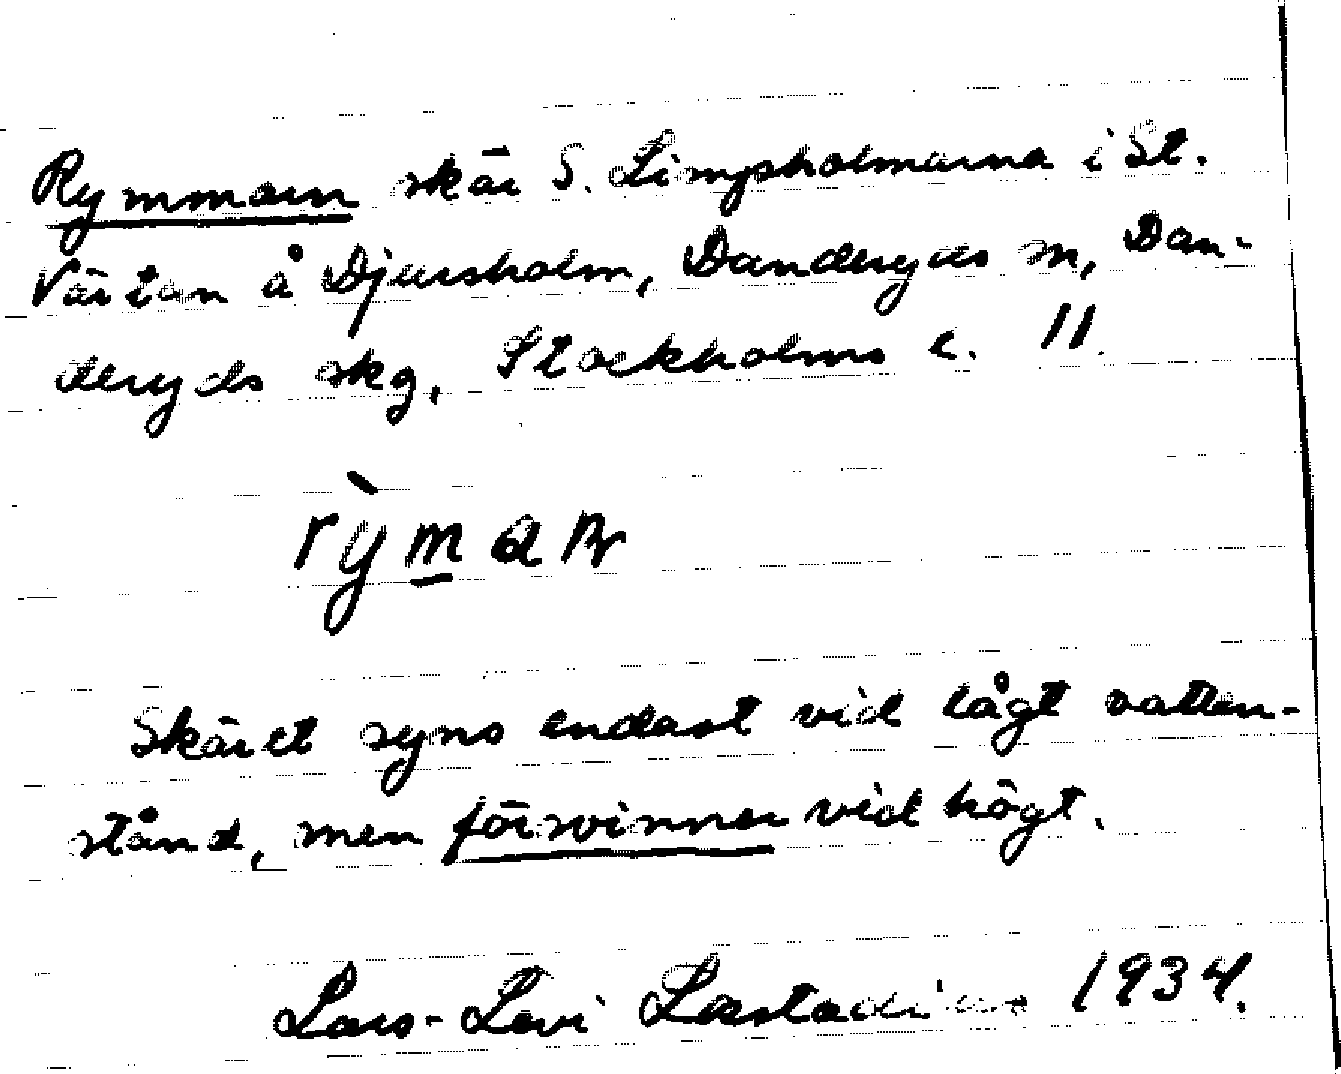 Rymmarn skär S. Limpsholmarna i St.
Värtan å Djursholm, Danderyds sn, Dan-
deryds skg, Stockholms l. 11.
rỳman
Skäret syns endast vid lågt vatten-
stånd, men försvinner vid högt.
Lars-Levi Læstadius 1934.